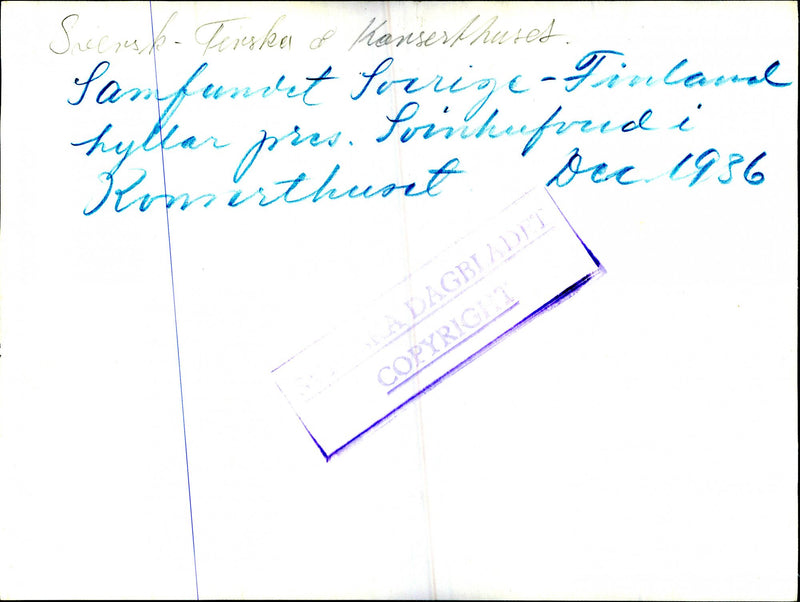 Svensk-Finska Konserthuset.
Samfundet Sverige-Finland
hyllar pres. Svinhufvud i
Konserthuset Dec. 1936
SVENSKA DAGBLADET
COPYRIGHT